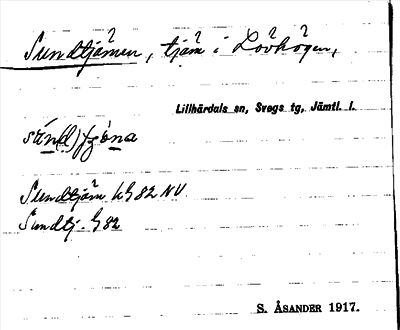 Sundtjärnen, tjärn i Lövhögen,
Lillhärdals sn, Svegs tg, Jämtl. l.
Sundtjärn kG 82 NV.
Sundtj. G 82
S. ÅSANDER 1917.